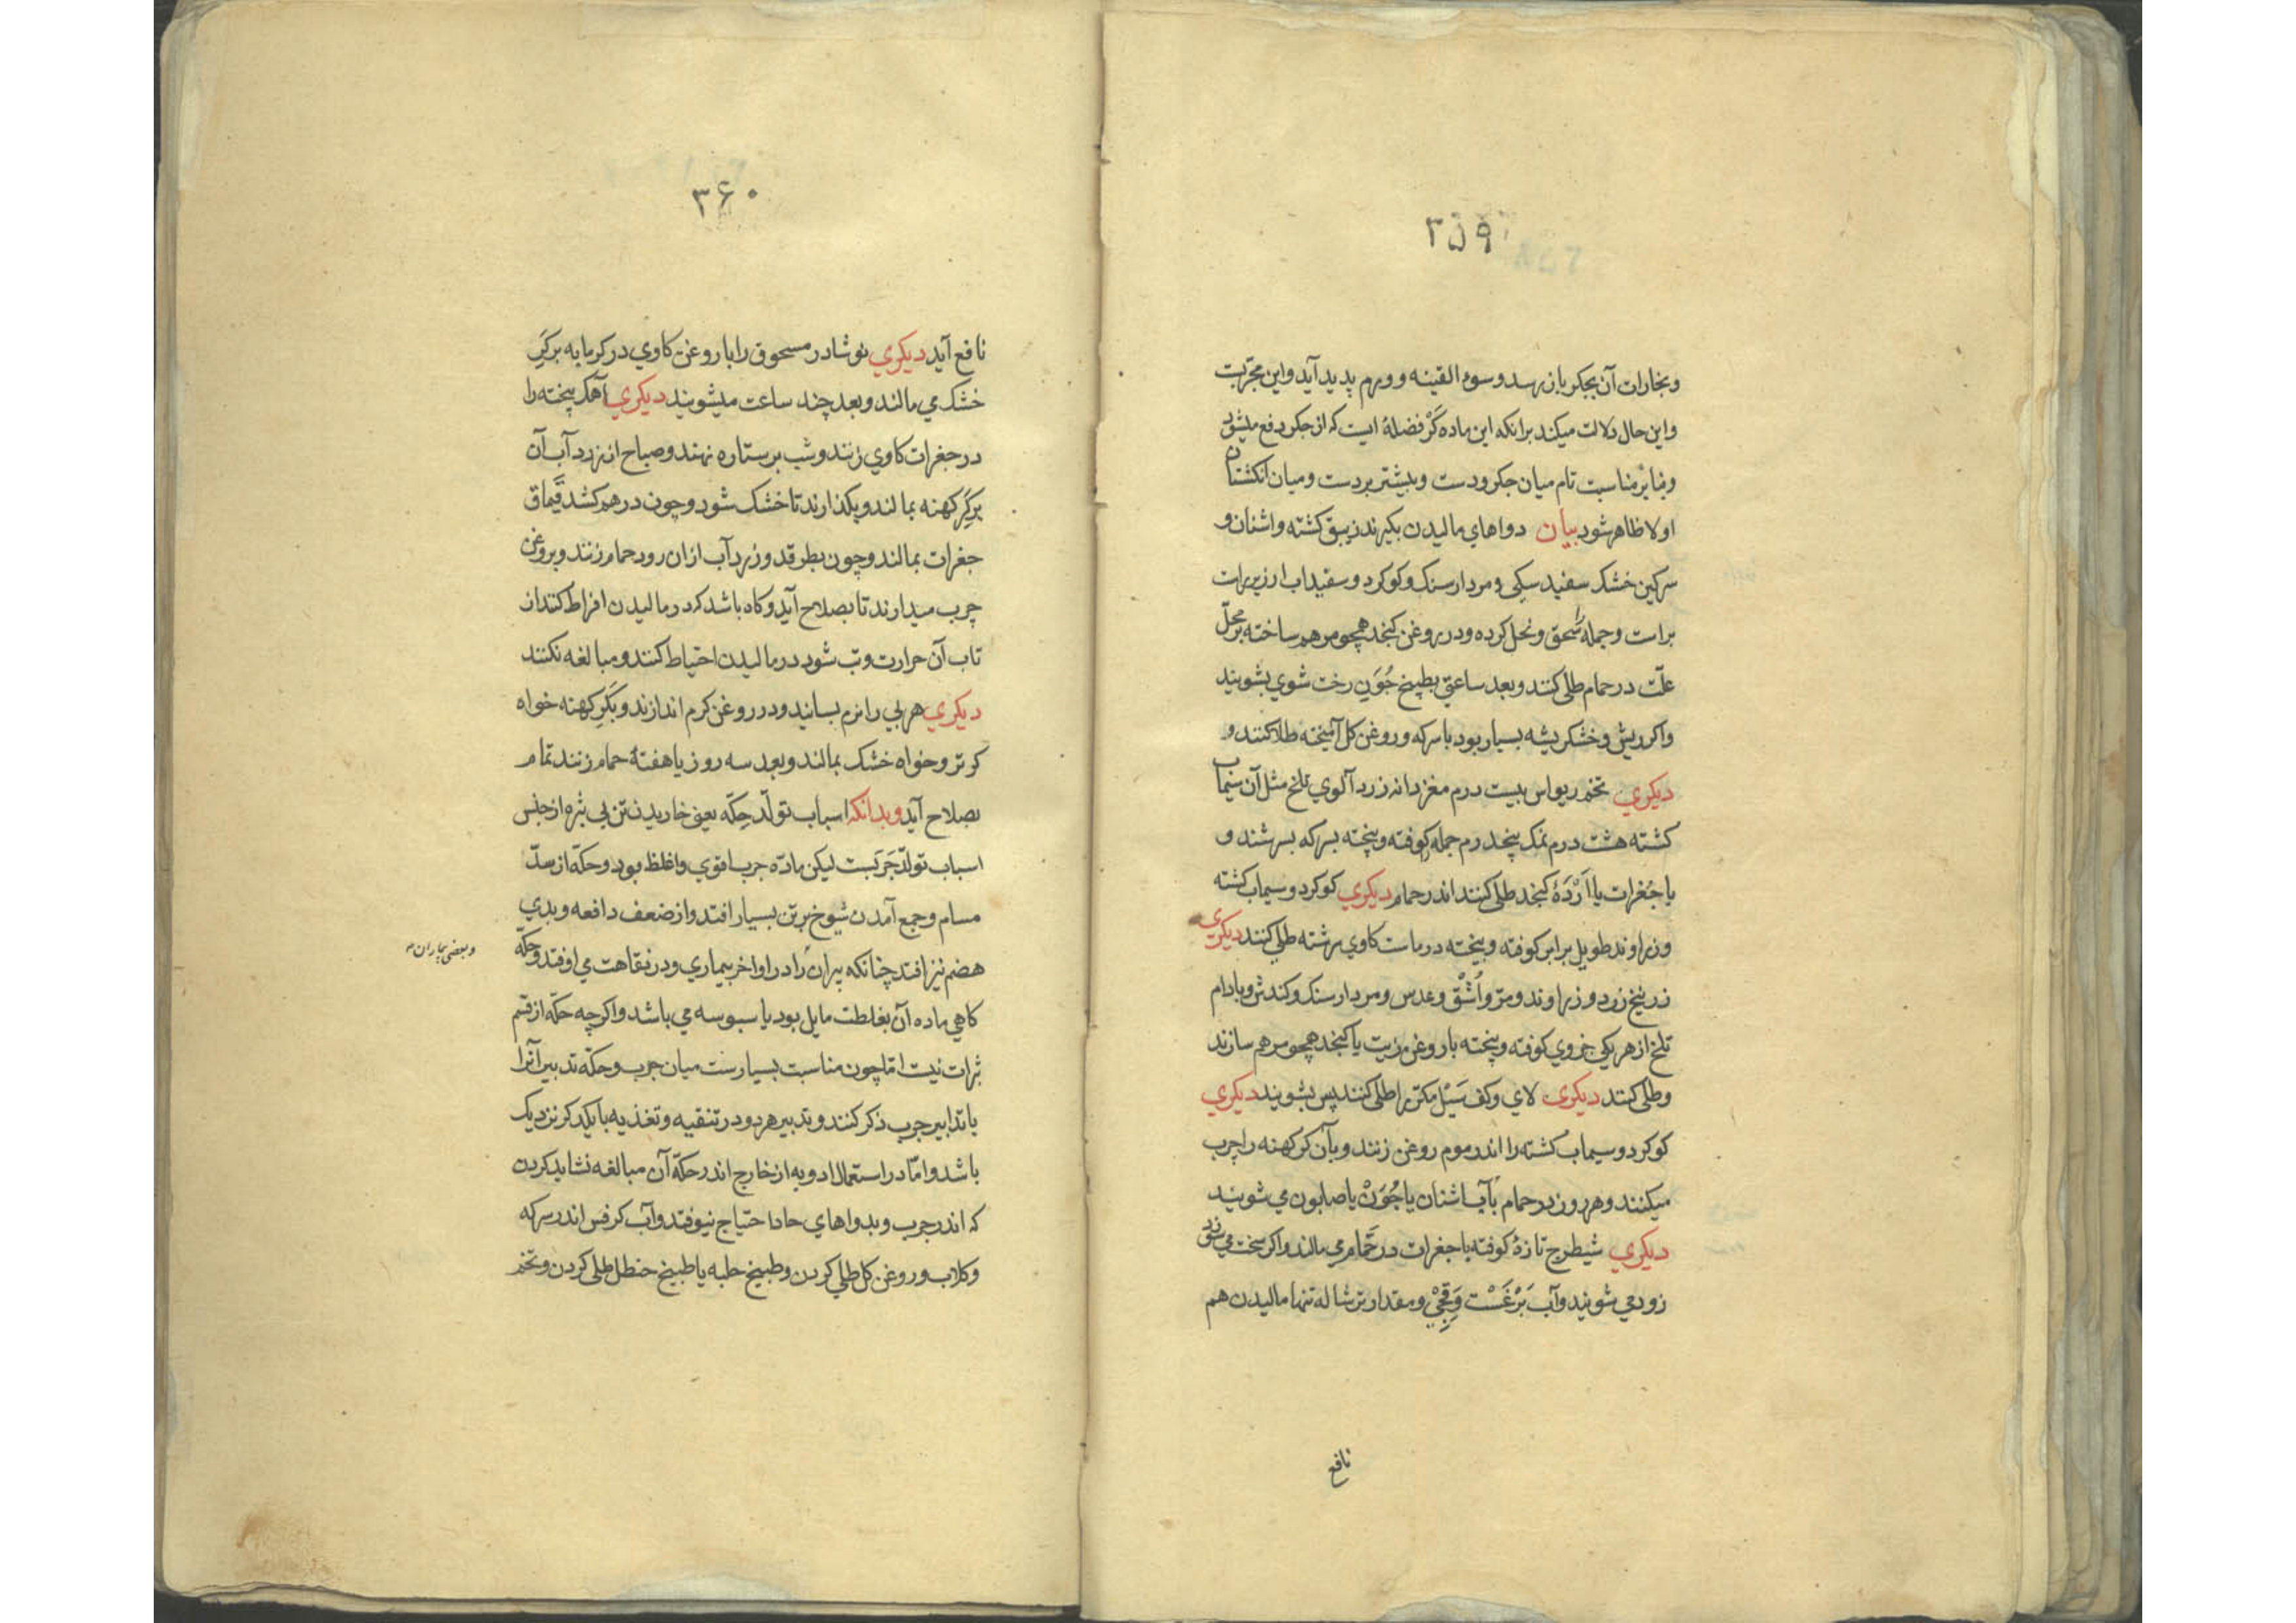 ۳۵۹
وبخارات آن بجکر باز رسد وسوء القینه وورم پدید آید واین مجربت
واین حال دلالت میکند برانکه این ماده کَرْ فضلهٔ ایست که از جکر دفع میشود
وبنابر مناسبت تام میان جکر ودست وبیشتر بردست ومیان انکشتان
اولا ظاهر شود بیان دواهای مالیدن بکیرند زیبق کشته واشنان و
سرکین خشک سفید سکی ومردارسنک وکوکرد وسفیداب ارزیر راست
براست وجمله سحق ونخل کرده ودر روغن کنجد همچو مرهم ساخته بر محلّ
علّت در حمام طلی کنند وبعد ساعتی بطبیخ جُوَنِ رخت شوی بشویند
واکر ریش وخشکریشه بسیار بود باسرکه وروغن کل آمیخته طلا کنند و
دیکری تخم ریواس بیست درم مغز دانه زردآلوی تلخ مثل آن سیماب
کشته هشت درم نمک پنجدرم جمله کوفته وبیخته بسرکه بسرشند و
یا جُغرات یا اَرْدَهٔ کنجد طلی کنند اندر حمام دیکری کوکرد وسیماب کشته
وزراوند طویل برابر کوفته وبیخته در ماست کاوی سرشته طلی کنند دیکری
زرنیخ زرد وزراوند ومرّ واُشّقْ وعدس ومردارسنک وکندش وبادام
تلخ از هر یکی جزوی کوفته وبیخته باروغن زیت یا کنجد همچو مرهم سازند
وطلی کنند دیکری لای وکف سَیْل مکرّ را طلی کنند پس بشویند دیکری
کوکرد وسیماب کشته را اندر موم روغن زنند وبآن کر کهنه را چرب
میکنند وهر روز در حمام بآب اشنان یا جُوَنْ یا صابون می شویند
دیکری شیطرج تازهٔ کوفته باجغرات در حَمّام می مالند واکر سخت می سوزد
زود می شویند وآب بَرْغَسْت وَقِچِیْ ومقدار ترشاله تنها مالیدن هم
نافع
۳۶۰
نافع آید دیکری نوشادر مسحوق را باروغن کاوی در کرمابه برکَرِ
خشک می مالند وبعد چند ساعت میشویند دیکری آهک پخته را
در جغرات کاوی زنند وشب بر ستاره نهند وصباح از زرد آب آن
برکَرِ کهنه بمالند وبکذارند تا خشک شود وچون درهم کشد قیماق
جغرات بمالند وچون بطرقد وزرد آب ازان رود حمام زنند وبروغن
چرب میدارند تا بصلاح آید وکاه باشد که در مالیدن افراط کنند از
تاب آن حرارت وتب شود در مالیدن احتیاط کنند ومبالغه نکنند
دیکری هربی را نرم بسانید ودر روغن کرم اندازند وبکَرِ کهنه خواه
کر تر وخواه خشک بمالند وبعد سه روز یا هفتهٔ حمام زنند تمام
بصلاح آید وبدانکه اسباب تولّد حِکّه یعنی خاریدن تن بی بثره از جنس
اسباب تولّد جَرَبَست لیکن مادّه جرب اقوی واغلظ بود وحکّه از سدّ
مسام وجمع آمدن شوخ برتن بسیار افتد واز ضعف دافعه وبدی
هضم نیز افتد چنانکه پیران را در اواخر بیماری ودر نقاهت می اوفتد وحکّه
وبعضی بیماران
کاهی ماده آن بغلظت مایل بود با سبوسه می باشد واکرچه حکّه از قسم
بثرات نیست امّا چون مناسبت بسیارست میان جرب وحکّه تدبیر آنرا
باتدابیر جرب ذکر کنند وتدبیر هر دو در تنقیه وتغذیه بایکدکر نزدیک
باشد وامّا در استعمال ادویه از خارج اندر حکّه آن مبالغه نشاید کردن
که اندر جرب وبدواهای حاد احتیاج نیوفتد وآب کرفس اندر سرکه
وکلاب وروغن کل طلی کردن وطبیخ حلبه یا طبیخ حنظل طلی کردن وتخم